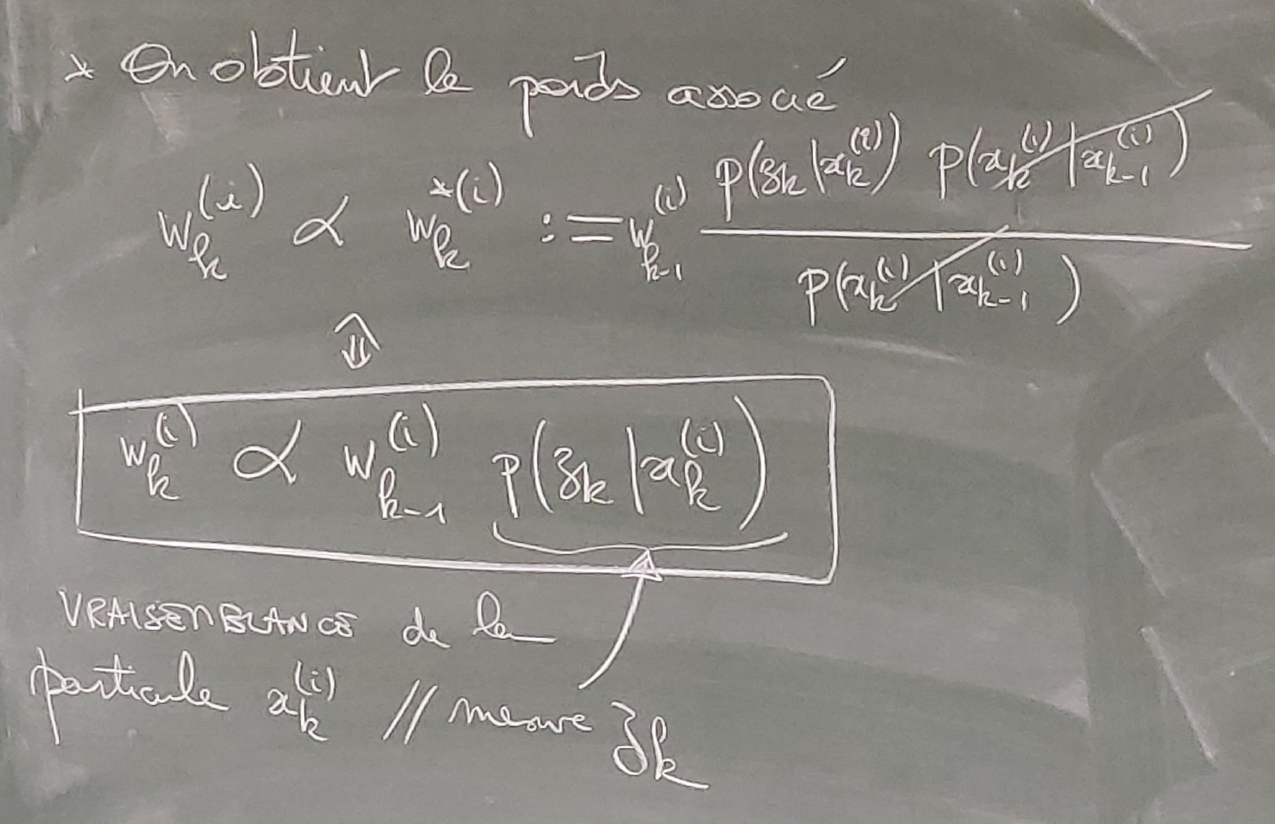 * On obtient le poids associé
w_k^{(i)} ∝ w_k^{*(i)} := w_{k-1}^{(i)} \frac{p(z_k | x_k^{(i)}) p(x_k^{(i)} | x_{k-1}^{(i)})}{p(x_k^{(i)} | x_{k-1}^{(i)})}
⇕
w_k^{(i)} ∝ w_{k-1}^{(i)} p(z_k | x_k^{(i)})
VRAISEMBLANCE de la
particule x_k^{(i)} // mesure z_k